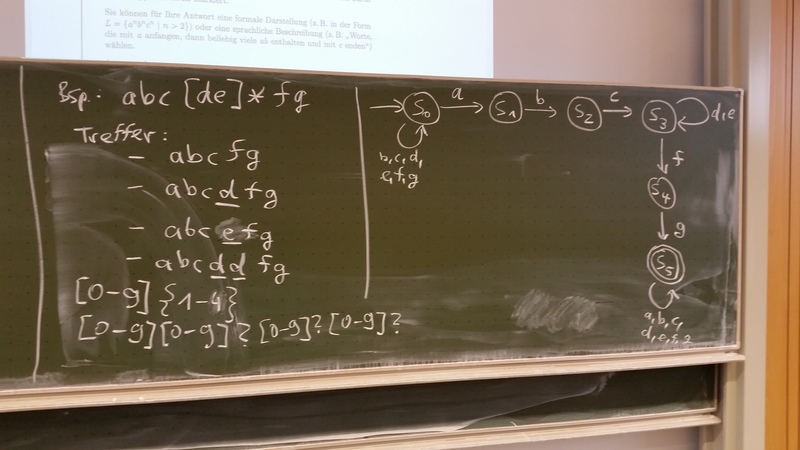 Sie können für Ihre Antwort eine formale Darstellung (z. B. in der Form
L = {aⁿbⁿcⁿ | n > 2}) oder eine sprachliche Beschreibung (z. B. „Worte,
die mit a anfangen, dann beliebig viele ab enthalten und mit c enden“)
wählen.
Bsp.: abc [de]* fg
Treffer:
- abc fg
- abc d fg
- abc e fg
- abc d d fg
[0-9]{1-4}
[0-9][0-9]?[0-9]?[0-9]?
S₀ a S₁ b S₂ c S₃ d,e
b,c,d,
e,f,g
f
S₄
g
S₅
a,b,c,
d,e,f,g